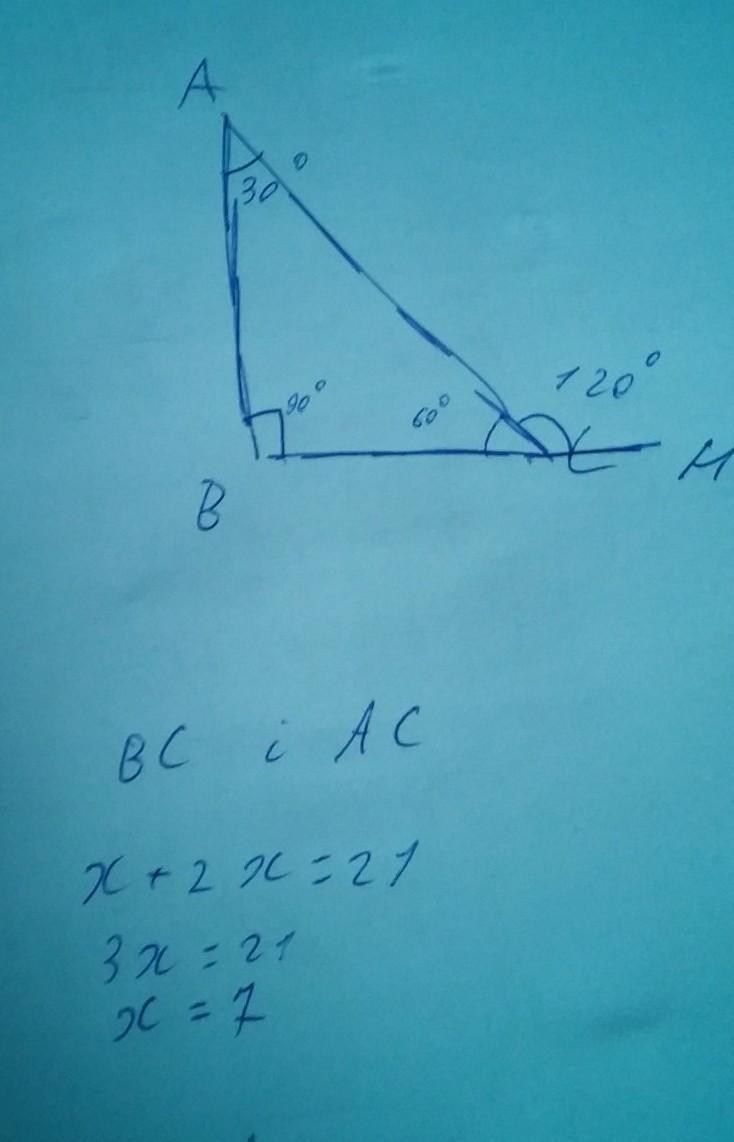 A
30°
90°
60°
120°
B
C
M
BC i AC
x + 2x = 21
3x = 21
x = 7